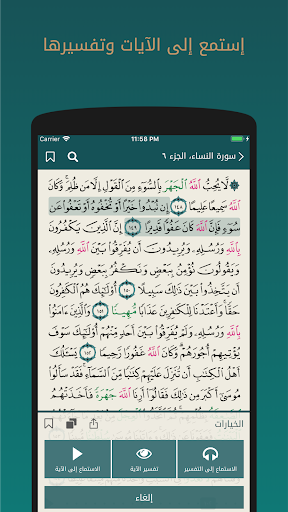 إستمع إلى الآيات وتفسيرها
Carrier 11:58 PM
سورة النساء، الجزء ٦
۞ لَّا يُحِبُّ ٱللَّهُ ٱلْجَهْرَ بِٱلسُّوٓءِ مِنَ ٱلْقَوْلِ إِلَّا مَن ظُلِمَ ۚ وَكَانَ
ٱللَّهُ سَمِيعًا عَلِيمًا ١٤٨ إِن تُبْدُوا۟ خَيْرًا أَوْ تُخْفُوهُ أَوْ تَعْفُوا۟ عَن
سُوٓءٍ فَإِنَّ ٱللَّهَ كَانَ عَفُوًّا قَدِيرًا ١٤٩ إِنَّ ٱلَّذِينَ يَكْفُرُونَ
بِٱللَّهِ وَرُسُلِهِۦ وَيُرِيدُونَ أَن يُفَرِّقُوا۟ بَيْنَ ٱللَّهِ وَرُسُلِهِۦ
وَيَقُولُونَ نُؤْمِنُ بِبَعْضٍ وَنَكْفُرُ بِبَعْضٍ وَيُرِيدُونَ
أَن يَتَّخِذُوا۟ بَيْنَ ذَٰلِكَ سَبِيلًا ١٥٠ أُو۟لَـٰٓئِكَ هُمُ ٱلْكَـٰفِرُونَ
حَقًّا ۚ وَأَعْتَدْنَا لِلْكَـٰفِرِينَ عَذَابًا مُّهِينًا ١٥١ وَٱلَّذِينَ ءَامَنُوا۟
بِٱللَّهِ وَرُسُلِهِۦ وَلَمْ يُفَرِّقُوا۟ بَيْنَ أَحَدٍ مِّنْهُمْ أُو۟لَـٰٓئِكَ سَوْفَ
يُؤْتِيهِمْ أُجُورَهُمْ ۗ وَكَانَ ٱللَّهُ غَفُورًا رَّحِيمًا ١٥٢ يَسْـَٔلُكَ
أَهْلُ ٱلْكِتَـٰبِ أَن تُنَزِّلَ عَلَيْهِمْ كِتَـٰبًا مِّنَ ٱلسَّمَآءِ ۚ فَقَدْ سَأَلُوا۟
مُوسَىٰٓ أَكْبَرَ مِن ذَٰلِكَ فَقَالُوٓا۟ أَرِنَا ٱللَّهَ جَهْرَةً فَأَخَذَتْهُمُ
الخيارات
الاستماع إلى التفسير
تفسير الآية
الاستماع إلى الآية
إلغاء